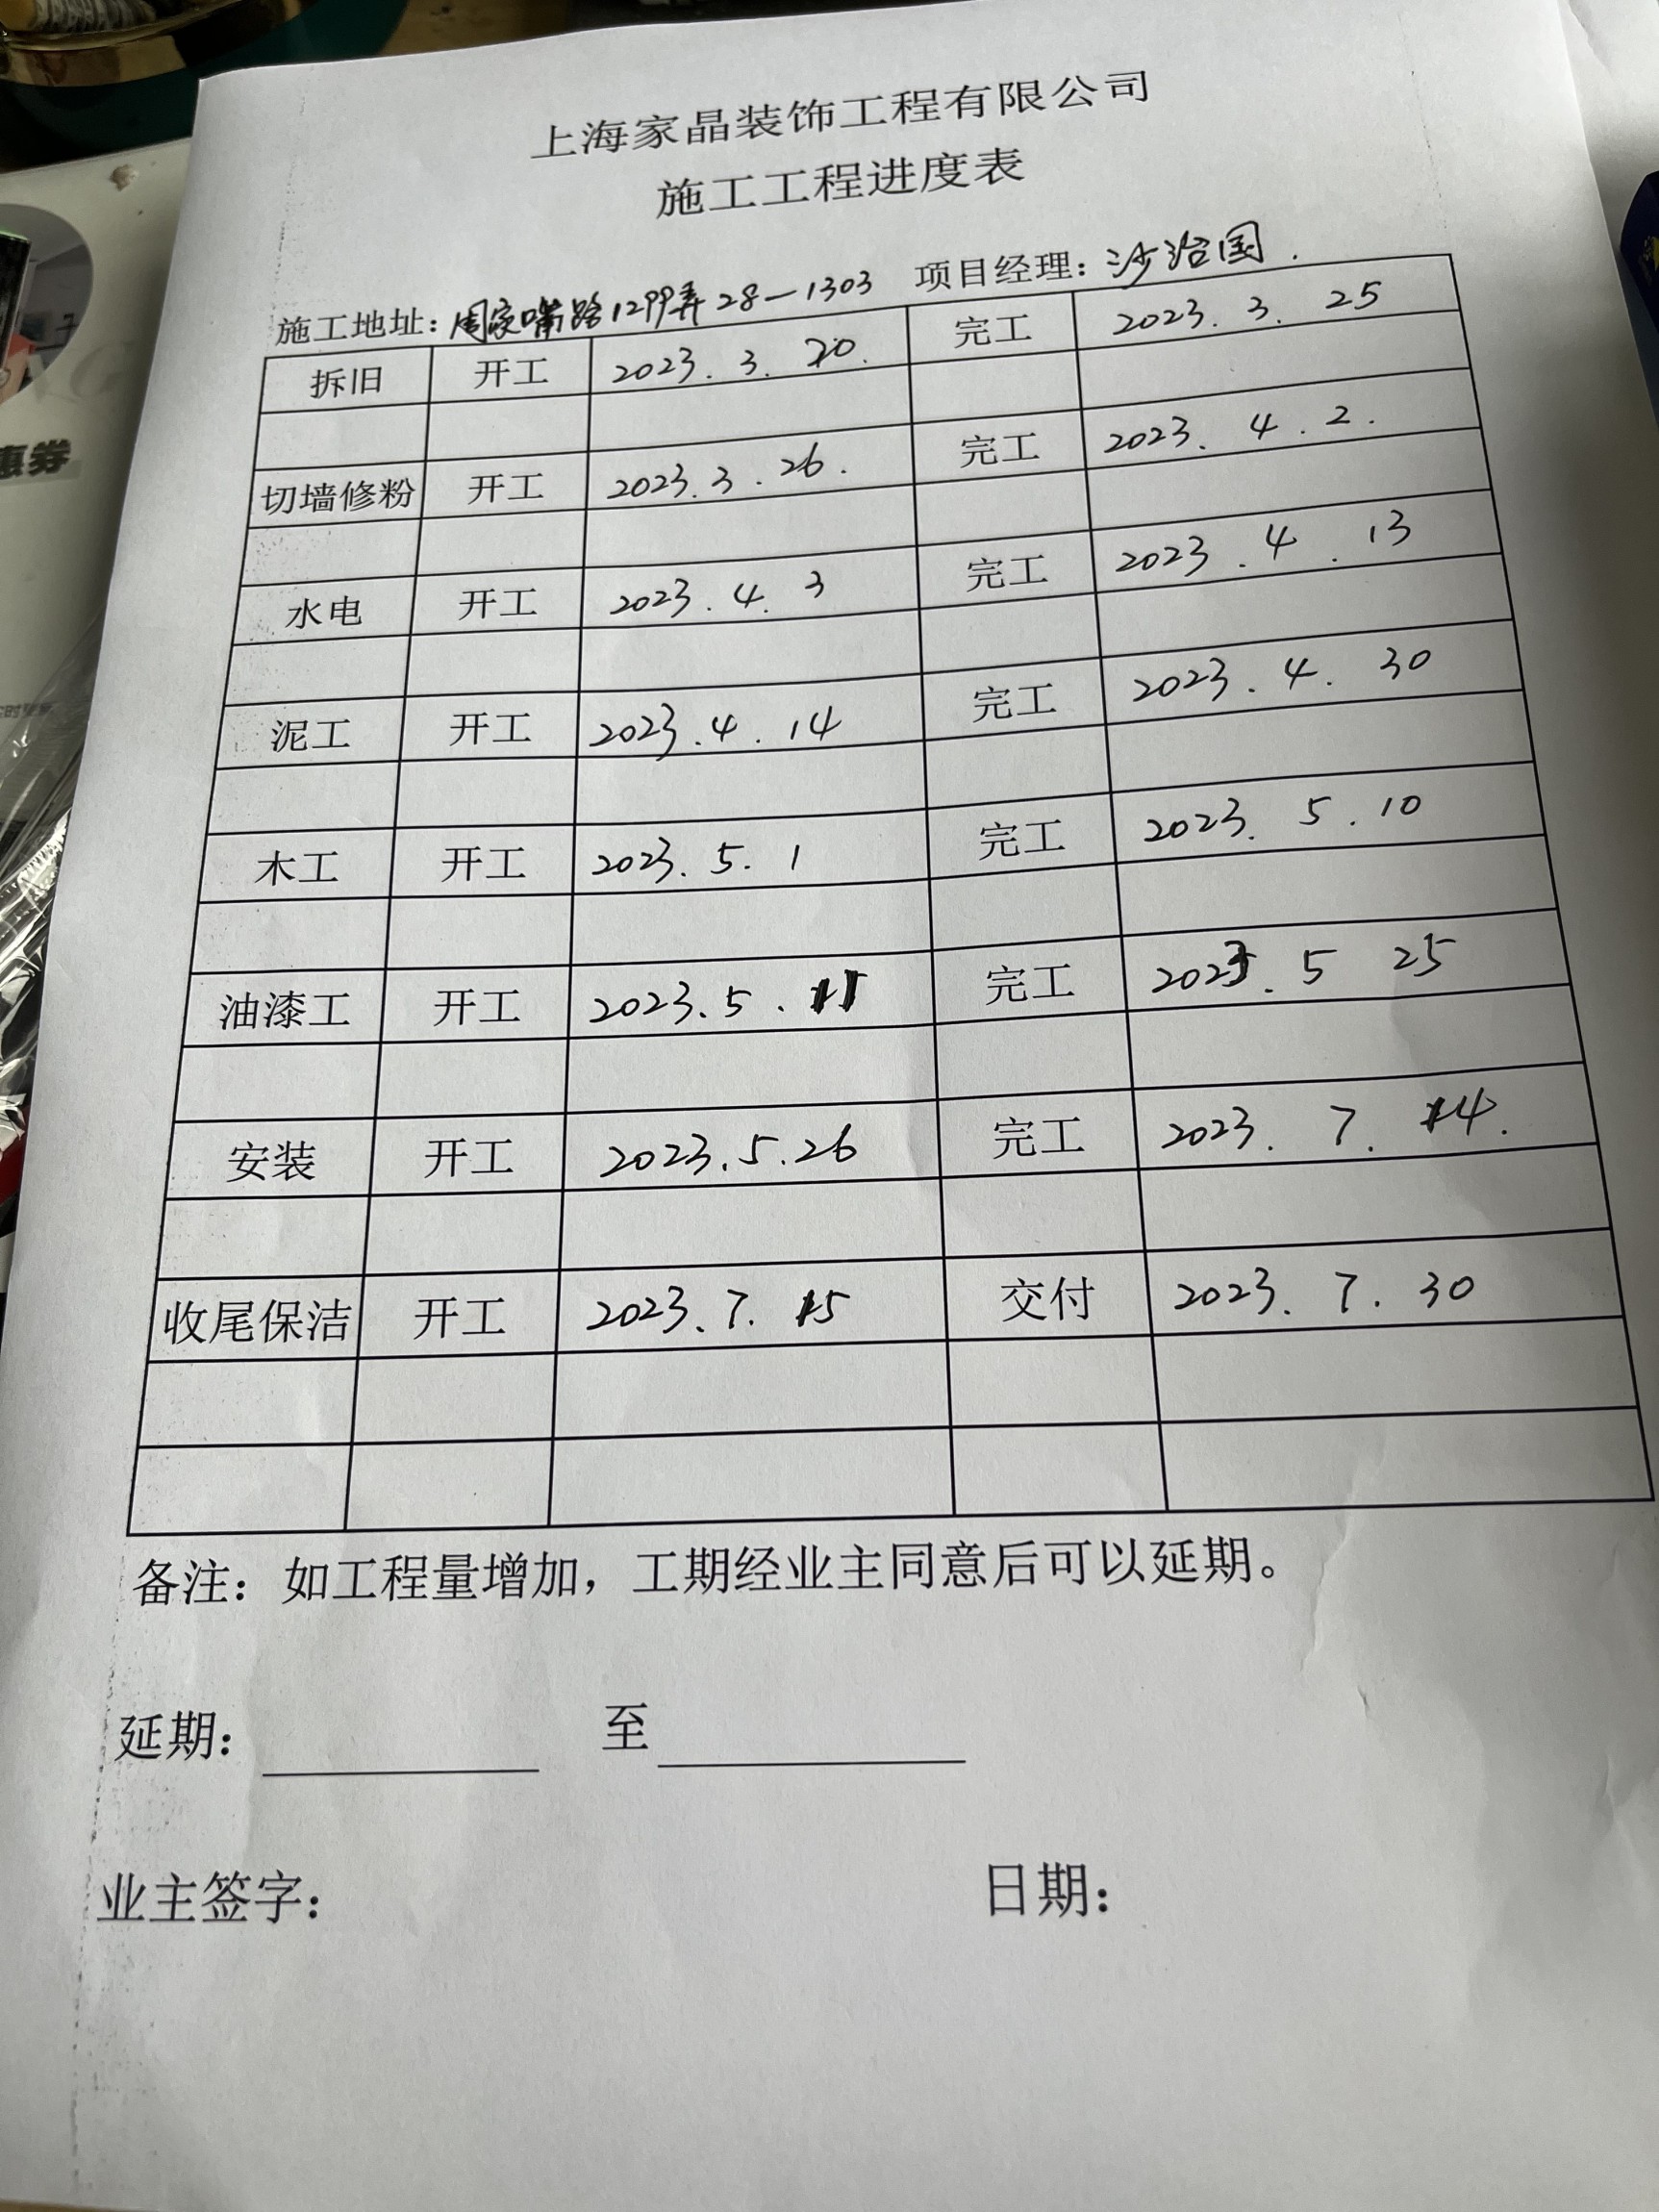 上海家晶装饰工程有限公司
施工工程进度表
施工地址：周家嘴路1299弄28—1303 项目经理：沙治国.
拆旧 开工 2023.3.20. 完工 2023.3.25
切墙修粉 开工 2023.3.26. 完工 2023.4.2.
水电 开工 2023.4.3 完工 2023.4.13
泥工 开工 2023.4.14 完工 2023.4.30
木工 开工 2023.5.1 完工 2023.5.10
油漆工 开工 2023.5.11 完工 2023.5 25
安装 开工 2023.5.26 完工 2023.7.14.
收尾保洁 开工 2023.7.15 交付 2023.7.30
备注：如工程量增加，工期经业主同意后可以延期。
延期： 至
业主签字： 日期：
惠券